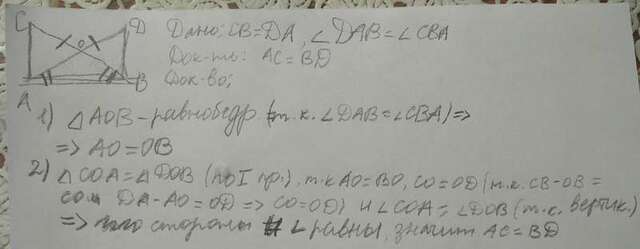 C D Дано: CB=DA, ∠DAB=∠CBA
O Док-ть: AC=BD
A B Док-во:
1) △AOB-равнобедр. (т.к. ∠DAB=∠CBA)=>
=> AO=OB
2) △COA=△DOB (по I пр.), т.к AO=BO, CO=OD (т.к. CB-OB=
DA-AO=OD => CO=OD) и ∠COA=∠DOB (т.к. вертик.)
=> стороны ∠ равны, значит AC=BD